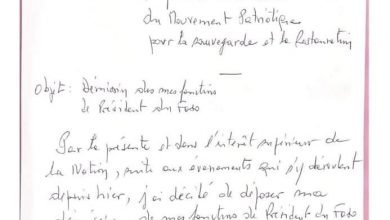 du Mouvement Patriotique
pour la sauvegarde et la Restauration
Objet : Démission des mes fonctions
de Président du Faso
Par la présente et dans l'intérêt supérieur de
la Nation, suite aux évènements qui s'y déroulent
depuis hier, j'ai décidé de déposer ma
démission de mes fonctions de Président du Faso